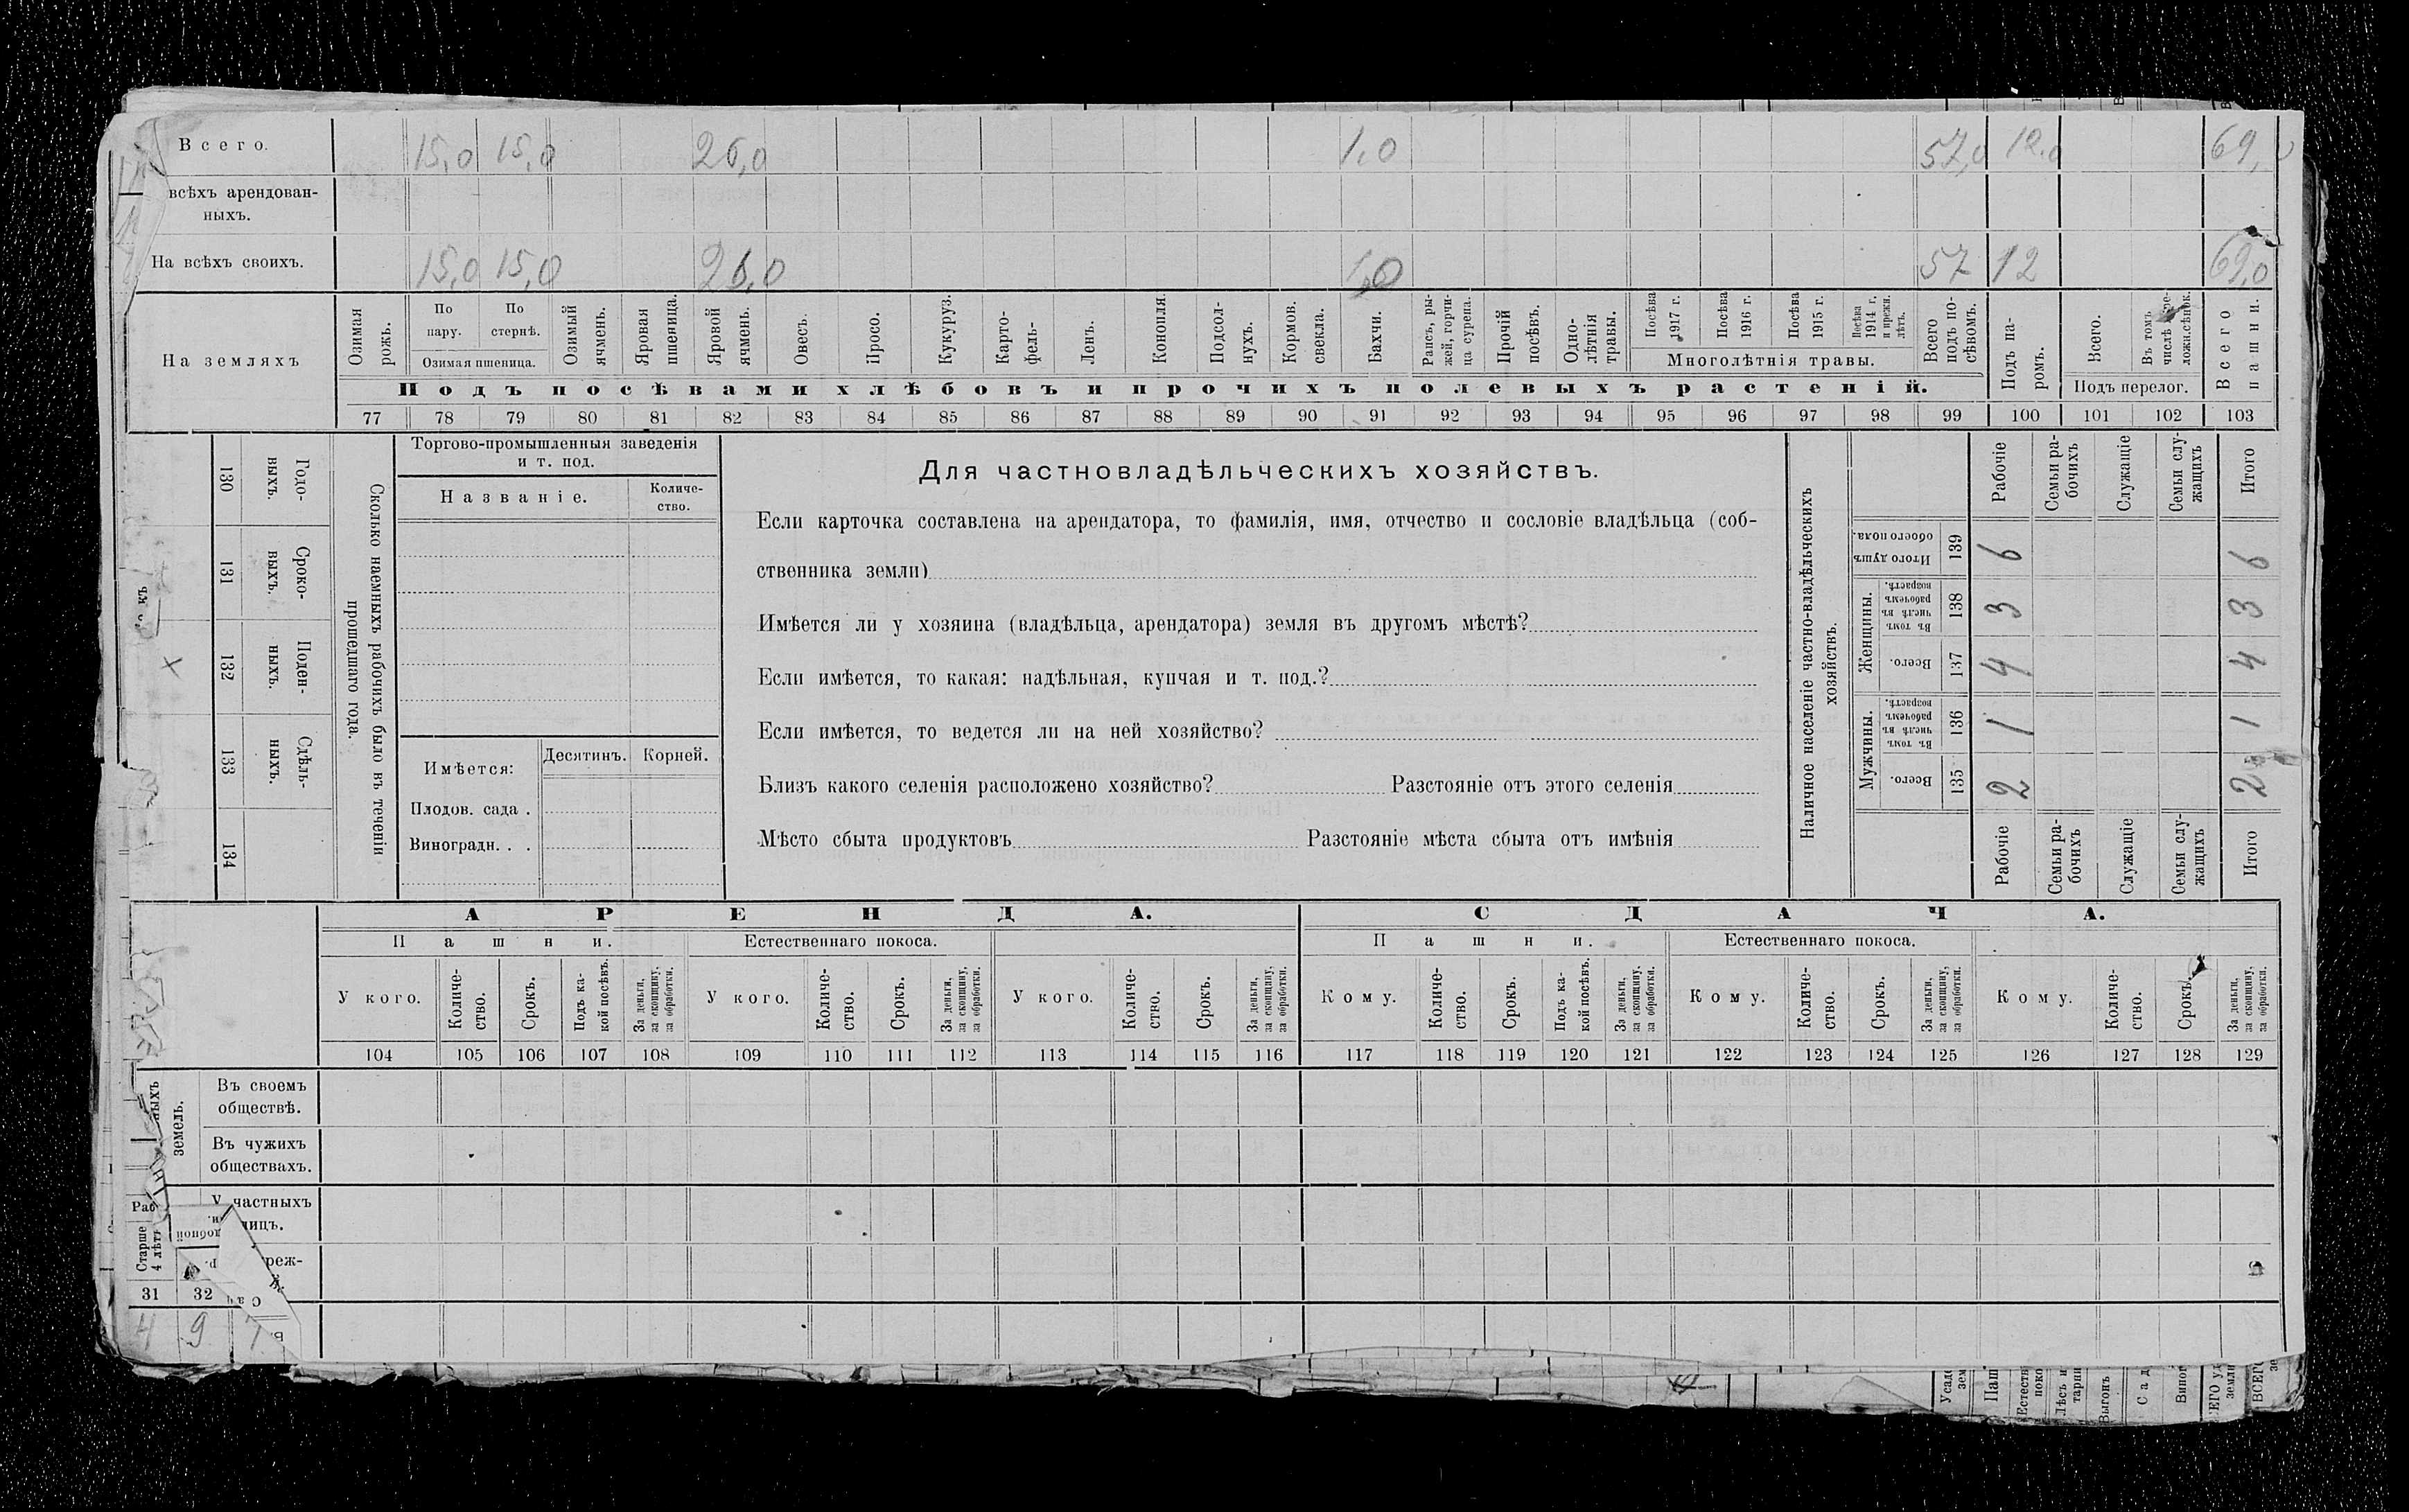 Всего. 15,0 15,0 26,0 1,0 57,0 12,0 69,0
всѣхъ арендован-
ныхъ.
На всѣхъ своихъ. 15,0 15,0 26,0 1,0 57 12 69,0
На земляхъ
Озимая рожь.
По пару.
По стернѣ.
Озимая пшеница.
Озимый ячмень.
Яровая пшеница.
Яровой ячмень.
Овесъ.
Просо.
Кукуруз.
Карто-
фель-
Ленъ.
Конопля.
Подсол-
нухъ.
Кормов.
свекла.
Бахчи.
Рапсъ, ры-
жей, горчи-
ца сурепа.
Прочій
посѣвъ.
Одно-
лѣтнія
травы.
Посѣва
1917 г.
Посѣва
1916 г.
Посѣва
1915 г.
Посѣва
1914 г.
и прежн.
лѣтъ.
Многолѣтнія травы.
Всего
подъ по-
сѣвомъ.
Подъ па-
ромъ.
Всего.
Въ томъ
числѣ
Подъ перелог.
Всего
пашни.
Подъ посѣвами хлѣбовъ и прочихъ полевыхъ растеній.
77 78 79 80 81 82 83 84 85 86 87 88 89 90 91 92 93 94 95 96 97 98 99 100 101 102 103
130 Годо-
выхъ.
131 Сроко-
выхъ.
132 Поден-
ныхъ.
133 Сдѣль-
ныхъ.
134
Сколько наемныхъ рабочихъ было въ теченіи
прошедшаго года.
Торгово-промышленныя заведенія
и т. под.
Названіе.
Количе-
ство.
Имѣется:
Десятинъ. Корней.
Плодов. сада .
Виноградн. . .
Для частновладѣльческихъ хозяйствъ.
Если карточка составлена на арендатора, то фамилія, имя, отчество и сословіе владѣльца (соб-
ственника земли)
Имѣется ли у хозяина (владѣльца, арендатора) земля въ другомъ мѣстѣ?
Если имѣется, то какая: надѣльная, купчая и т. под.?
Если имѣется, то ведется ли на ней хозяйство?
Близъ какого селенія расположено хозяйство? Разстояніе отъ этого селенія
Мѣсто сбыта продуктовъ Разстояніе мѣста сбыта отъ имѣнія
Наличное населеніе частно-владѣльческихъ
хозяйствъ.
Рабочіе
Семьи ра-
бочихъ
Служащіе
Семьи слу-
жащихъ
Итого
Итого душъ
обоего пола.
139 6 6
Женщины.
Въ томъ
числѣ въ
рабочемъ
возрастѣ.
138 3 3
Всего.
137 4 4
Мужчины.
Въ томъ
числѣ въ
рабочемъ
возрастѣ.
136 1 1
Всего.
135 2 2
Рабочіе
Семьи ра-
бочихъ
Служащіе
Семьи слу-
жащихъ
Итого
АРЕНДА. СДАЧА.
Пашни. Естественнаго покоса. Пашни. Естественнаго покоса.
У кого.
Количе-
ство.
Срокъ.
Подъ ка-
кой посѣвъ.
За деньги,
за скопщину,
за обработки.
У кого.
Количе-
ство.
Срокъ.
За деньги,
за скопщину,
за обработки.
У кого.
Количе-
ство.
Срокъ.
За деньги,
за скопщину,
за обработки.
Кому.
Количе-
ство.
Срокъ.
Подъ ка-
кой посѣвъ.
За деньги,
за скопщину,
за обработки.
Кому.
Количе-
ство.
Срокъ.
За деньги,
за скопщину,
за обработки.
Кому.
Количе-
ство.
Срокъ.
За деньги,
за скопщину,
за обработки.
104 105 106 107 108 109 110 111 112 113 114 115 116 117 118 119 120 121 122 123 124 125 126 127 128 129
земель.
Въ своемъ
обществѣ.
Въ чужихъ
обществахъ.
У частныхъ
лицъ.
Старше
31 32
4 9 7